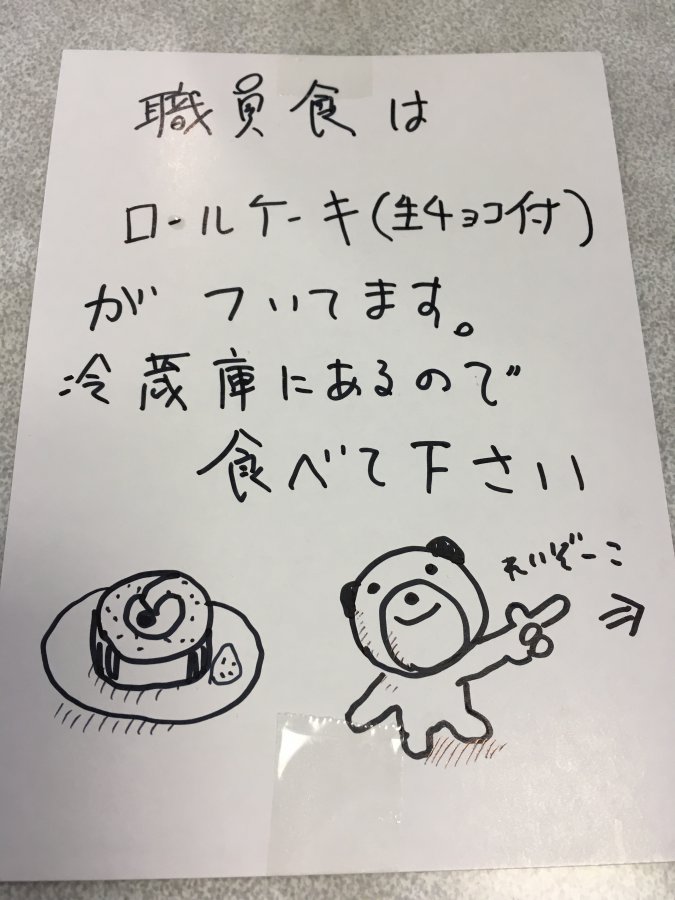 職員食は
ロールケーキ(生チョコ付)
がついてます。
冷蔵庫にあるので
食べて下さい
れいぞーこ